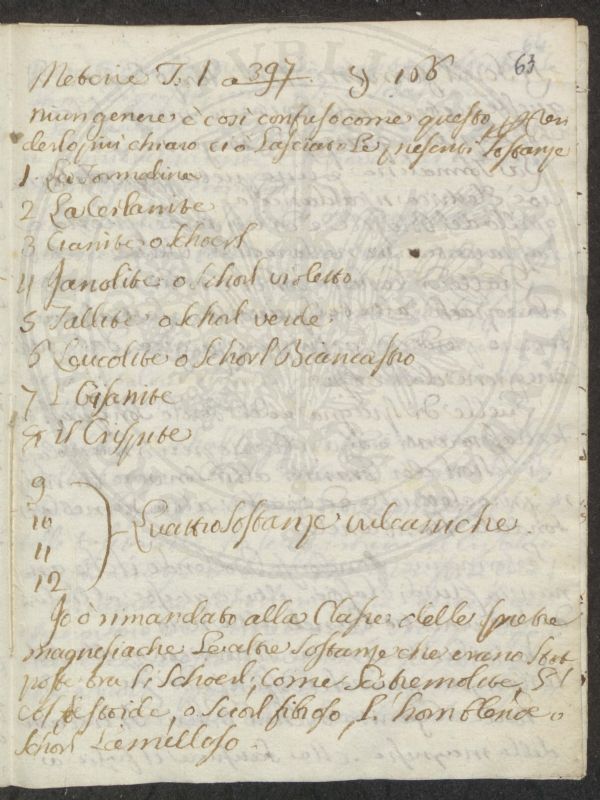 Meterie T. 1 a 397 § 106 63
niun genere è così confuso come questo, per ren
derlo piu chiaro ci ò Lasciato Le presenti sostanze
1 La Tormalina
2 La Ceilanite
3 Cianite o Schoerl
4 Janolite o Schorl violetto
5 Tallite o Schorl verde
6 Leucolite o Schorl Biancastro
7 L'Oisanite
8 il Crispite
9
10
11
12
Quattro Sostanze vulcaniche
Io ò rimandato alla Classe delle pietre
magnesiache Le altre Sostanze che erano state
poste tra li Schoerl, come La tremolite,
o Sciorl fibroso, L'hornblende o
Schorl Lamelloso